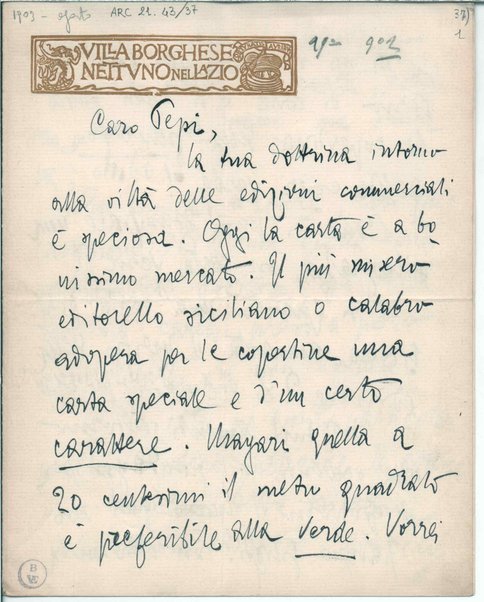 1903 - agosto
ARC 21. 43/37
37)
1
VILLA BORGHESE
NETTVNO NEL LAZIO
903
Caro Pepi,
la tua dottrina intorno
alla viltà delle edizioni commerciali
è speciosa. Oggi la carta è a bo
nissimo mercato. Il più misero
editorello siciliano o calabro
adopera per le copertine una
carta speciale e d'un certo
carattere. Magari quella a
20 centesimi il metro quadrato
è preferibile alla verde. Vorrei
B
VE